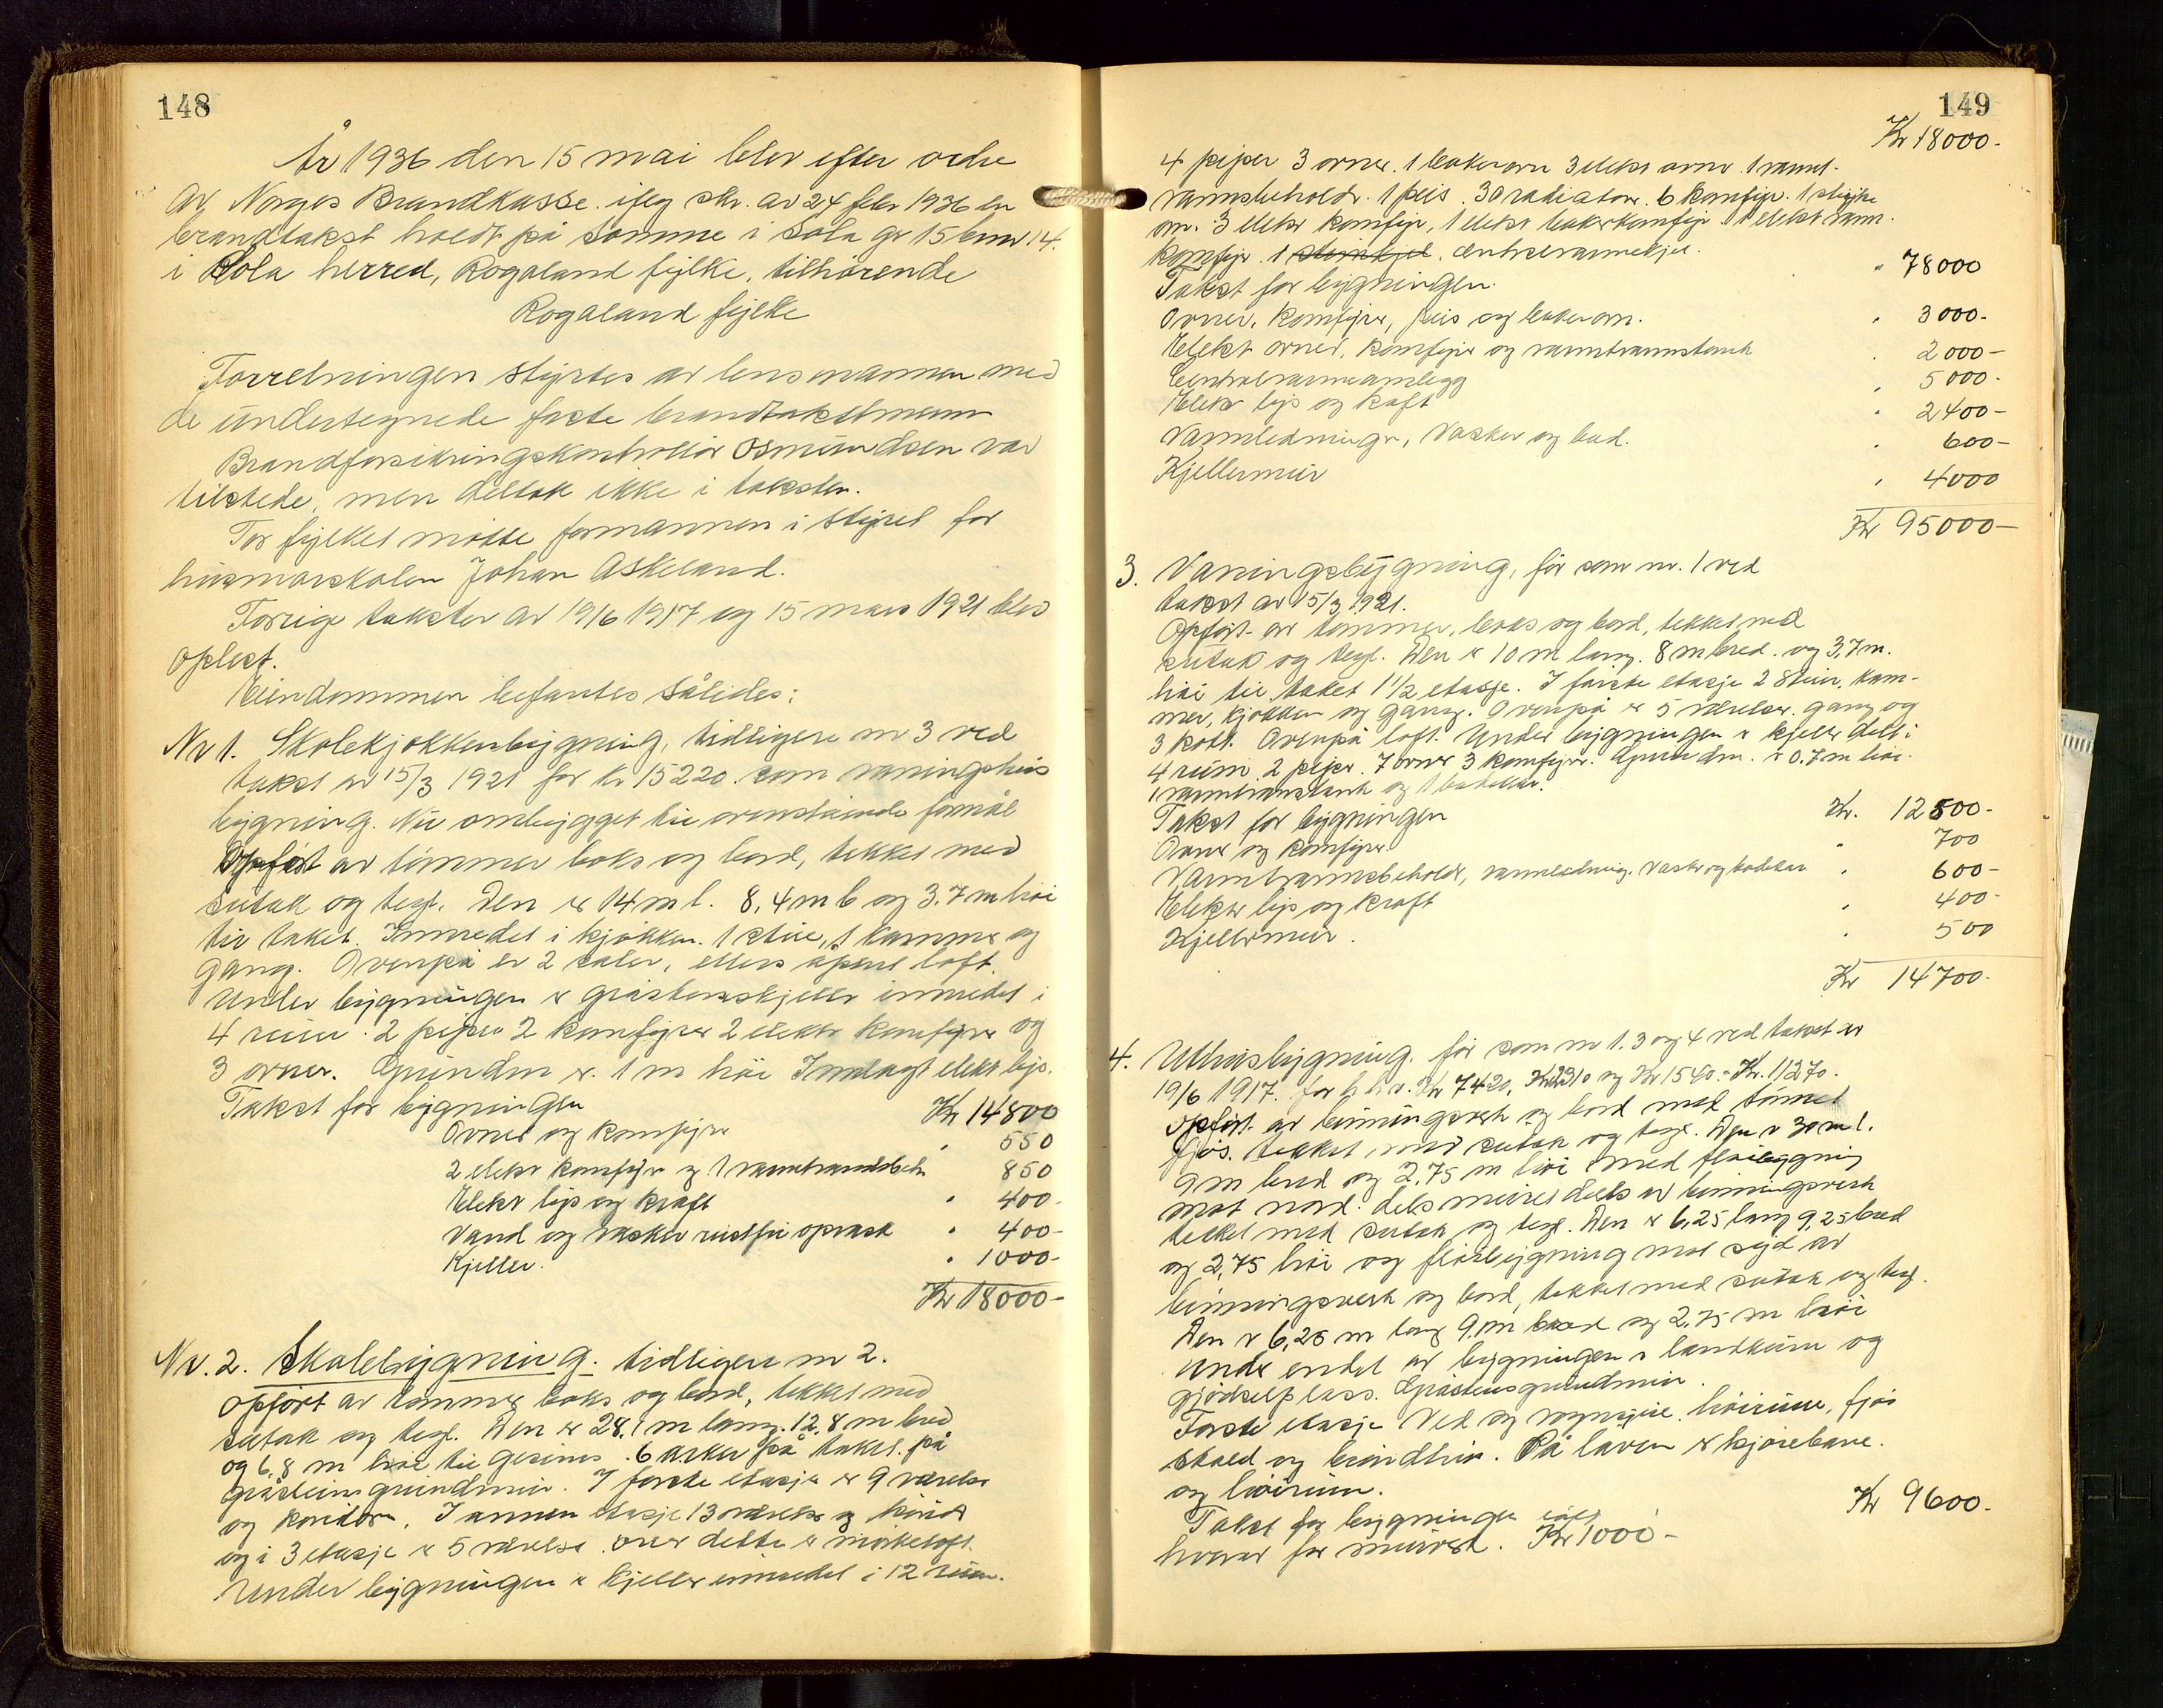 148
År 1936 den 15 mai blev efter ordre
av Norges Brandkasse iflg skr. av 24 febr 1936 en
brandtakst holdt på Sømme i Sola gr 15 bnr 14.
i Sola herred, Rogaland fylke, tilhørende
Rogaland fylke
Forretningen styrtes av lensmannen med
de undertegnede faste brandtakstmenn
Brandforsikringskontrollør Osmundsen var
tilstede, men deltok ikke i taksten.
For fylket møtte formannen i styret for
husmorskolen Johan Askeland.
Forrige takster av 19/6 1917 og 15 mars 1921 blev
oplest.
Eiendommen befantes således:
Nr 1. Skolekjøkkenbygning, tidligere nr 3 ved
takst av 15/3 1921 for kr 15220. som vaningshus
bygning. Nu ombygget til ovenstående formål
Opført av tømmer boks og bord, tekket med
sutak og tegl. Den er 14 m l. 8,4 m b og 3.7 m høi
til taket. Innredet i kjøkken. 1 stue, 1 kammer og
gang. Ovenpå er 2 saler, ellers åpent loft.
Under bygningen er gråstenskjeller innredet i
4 rum. 2 piper 2 komfyrer 2 elektr komfyrer og
3 ovner. Grundm er. 1 m høi Innlagt elekt lys.
Takst for bygningen Kr 14800
Ovner og komfyrer " 550
2 elektr komfyr og 1 varmtvandsbeh. 850
Elektr lys og kraft " 400
Vand og vasker rustfri opvask " 400-
Kjeller. " 1000-
Kr 18000-
Nr. 2. Skolebygning. tidligere nr 2.
Opført av tømmer boks og bord, tekket med
sutak og tegl. Den er 28,1 m lang. 12,8 m bred
og 6,8 m høi til gesims. 6 arker på taket. på
gråstensgrundmur. I første etasje er 9 værelser
og koridorer. I annen etasje 13 værelser og
og i 3 etasje er 5 værelser. over dette er mørkeloft.
Under bygningen er kjeller innredet i 12 rum.
149
Kr 18000-
4 piper 3 ovner. 1 bakerovn 3 elektr ovner 1 varmt-
vannsbeholder. 1 peis. 30 radiatorer. 6 komfyr. 1 stryke
ovn. 3 elektr komfyr, 1 elektr bakerkomfyr 1 elektr varm.
komfyr. 1 centralvarmekjel.
Takst for bygningen. " 78000
Ovner, komfyrer, peis og bakerovn. " 3000-
Elekt ovner, komfyrer og varmtvannstank " 2000-
Centralvarmeanlegg " 5000-
Elektr lys og kraft " 2400-
Vannledninger, vasker og bad. " 600-
Kjellermur " 4000
Kr 95000-
3. Vaningsbygning, før som nr. 1 ved
takst av 15/3 1921.
Opført av tømmer, boks og bord, tekket med
sutak og tegl. Den er 10 m lang. 8 m bred. og 3,7 m.
høi til taket 1 1/2 etasje. I første etasje 2 stuer, kam-
mer, kjøkken og gang. Ovenpå er 5 værelser. gang og
3 kott. Ovenpå loft. Under bygningen er kjeller delt i
4 rum 2 piper. 7 ovner 3 komfyrer. Grundm. er 0.7 m høi.
1 varmtvanstank og 1 badekar.
Takst for bygningen Kr. 12500-
Ovner og komfyrer " 700
Varmtvannsbeholder, vannledning. vasker og badekar " 600-
Elektr lys og kraft " 400-
Kjellermur. " 500
Kr 14700-
4. Uthusbygning. før som nr 1. 3 og 4 ved takst av
19/6 1917. for h. h. v. Kr 7420, Kr 2310 og Kr 1540.- Kr. 11270.
opført av binningsverk og bord med tømret
fjøs. tekket med sutak og tegl. Den er 30 m l.
9 m bred og 2,75 m høi med fløibygning
mot nord. dels muret dels av binningsverk
tekket med sutak og tegl. Den er 6,25 lang 9,25 bred
og 2,75 høi og fløibygning mot syd av
binningsverk og bord, tekket med sutak og tegl.
Den er 6,25 m lang 9 m bred og 2,75 m høi
Under endel av bygningen er landkum og
gjødselplass. Gråstensgrundmur.
Første etasje Ved og vognskjul. høirum, fjøs
stald og grindhus. På låven er kjørebane.
og høirum.
Takst for bygningen i alt Kr 9600.
hvorav for murverk. Kr 1000-